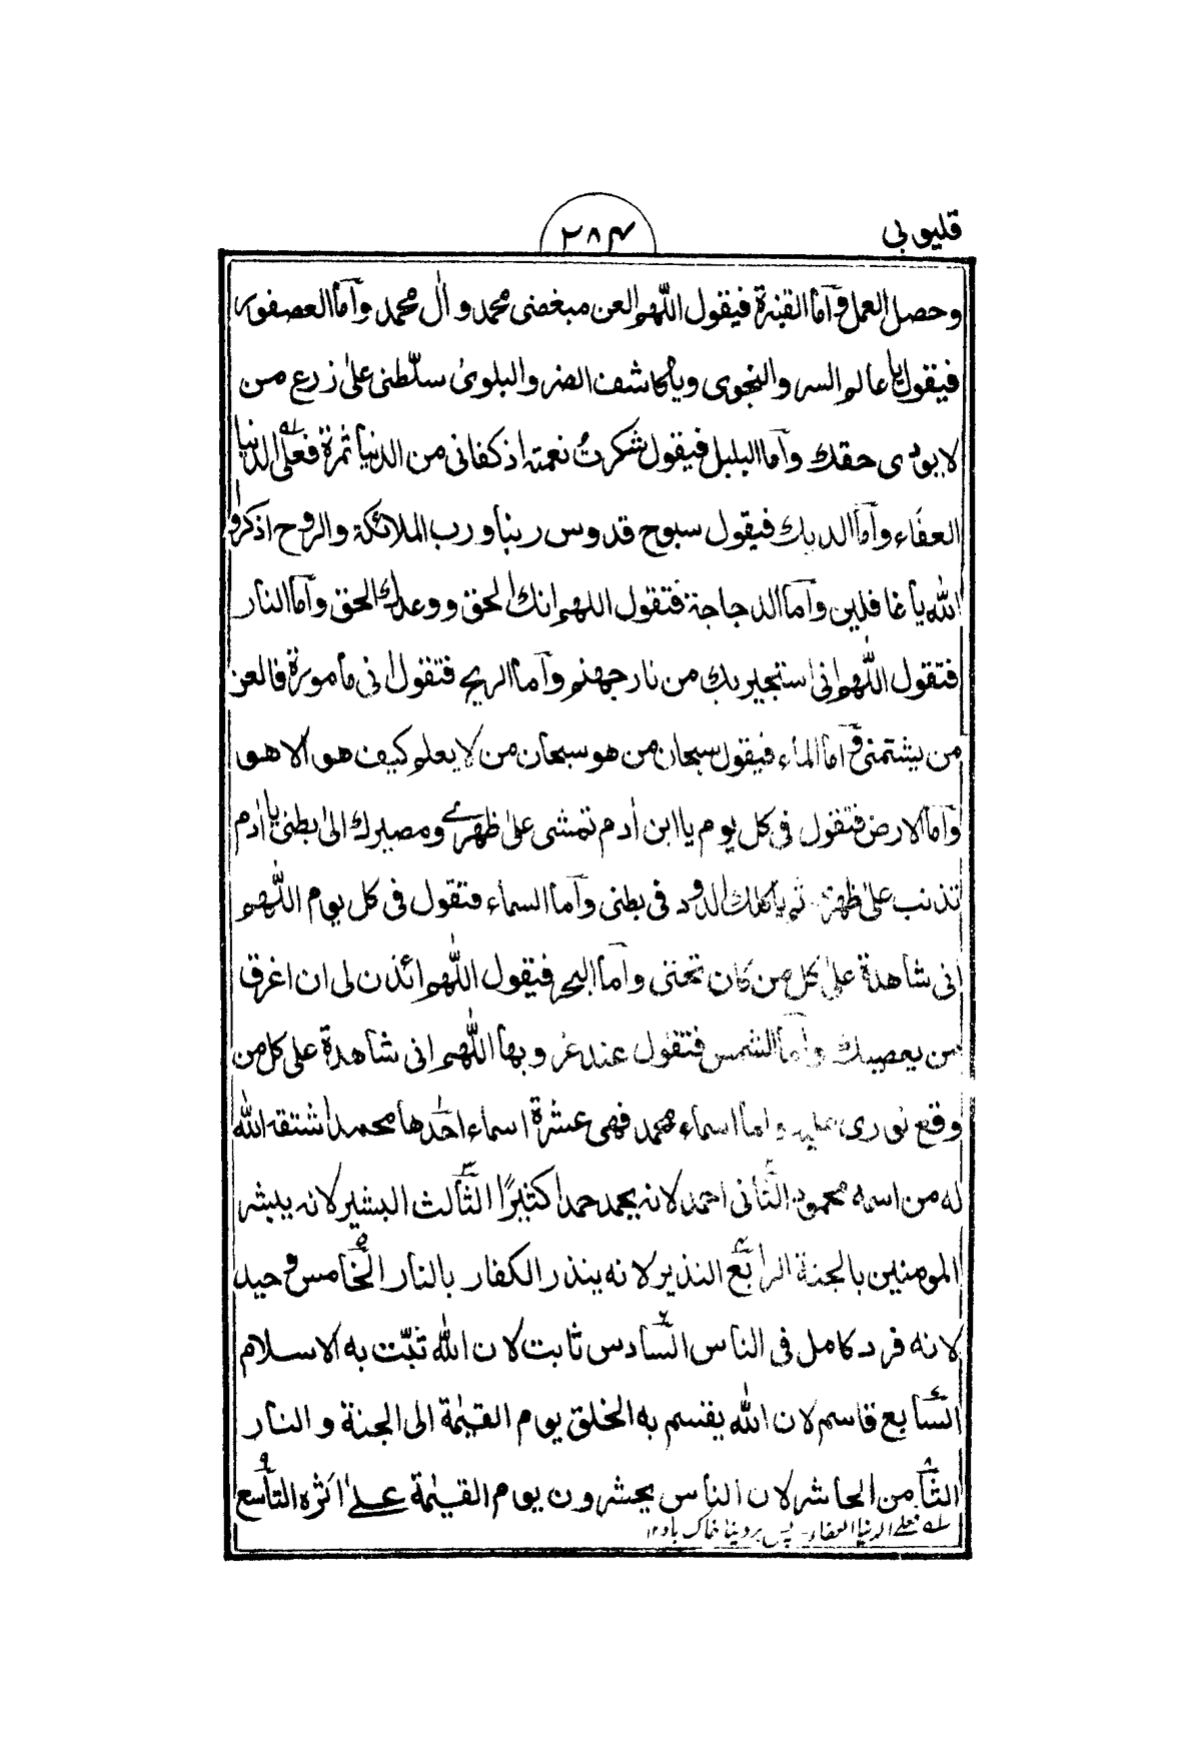 قليوبى
٢٨٤
وحصل العمل وأما القبنرة فيقول اللّٰهم العن مبغضى محمد و اٰل محمد وأما العصفور
فيقول يا عالم السر والنجوى ويا كاشف الضر والبلوىٰ سلّطنى علىٰ زرع من
لا يودى حقك وأما البلبل فيقول شكرتُ نعمته اذ كفانى من الدنيا ثمرة فعلى الدنيا
العفاء وأما الديك فيقول سبوح قدوس ربنا ورب الملائكة والروح اذكروا
اللّٰه يا غافلين وأما الدجاجة فتقول اللهم انك الحق ووعدك الحق وأما النار
فتقول اللّٰهم انى استجير بك من نار جهنم وأما الريح فتقول انى مامورة فالعن
من يشتمنى وأما الماء فيقول سبحان من هو سبحان من لا يعلم كيف هو الا هو
وأما الارض فتقول فى كل يوم يا ابن اٰدم تمشى علىٰ ظهرے ومصيرك الىٰ بطنى يا اٰدم
تذنب علىٰ ظهرى ثم ياكلك الدود فى بطنى وأما السماء فتقول فى كل يوم اللّٰهم
انى شاهدة علىٰ كل من كان تحتى وأما البحر فيقول اللّٰهم ائذن لى ان اغرق
من يعصيك وأما الشمس فتقول عند غروبها اللّٰهم انى شاهدة على كل من
وقع نورى عليه واما اسماء محمد فهى عشرة اسماء احدها محمد اشتقه اللّٰه
له من اسمه محمود الثانى احمد لانه يحمد حمدا كثيرًا الثالث البشير لانه يبشر
المومنين بالجنة الرابع النذير لانه ينذر الكفار بالنار الخامس وحيد
لانه فرد كامل فى الناس السادس ثابت لان اللّٰه ثبّت به الاسلام
السابع قاسم لان اللّٰه يقسم به الخلق يوم القيٰمة الى الجنة والنار
الثامن الحاشر لان الناس يحشرون يوم القيٰمة علىٰ اثره التاسع
له فعلے الدنيا العفاء - پس بر دنيا خاک باد ١٢